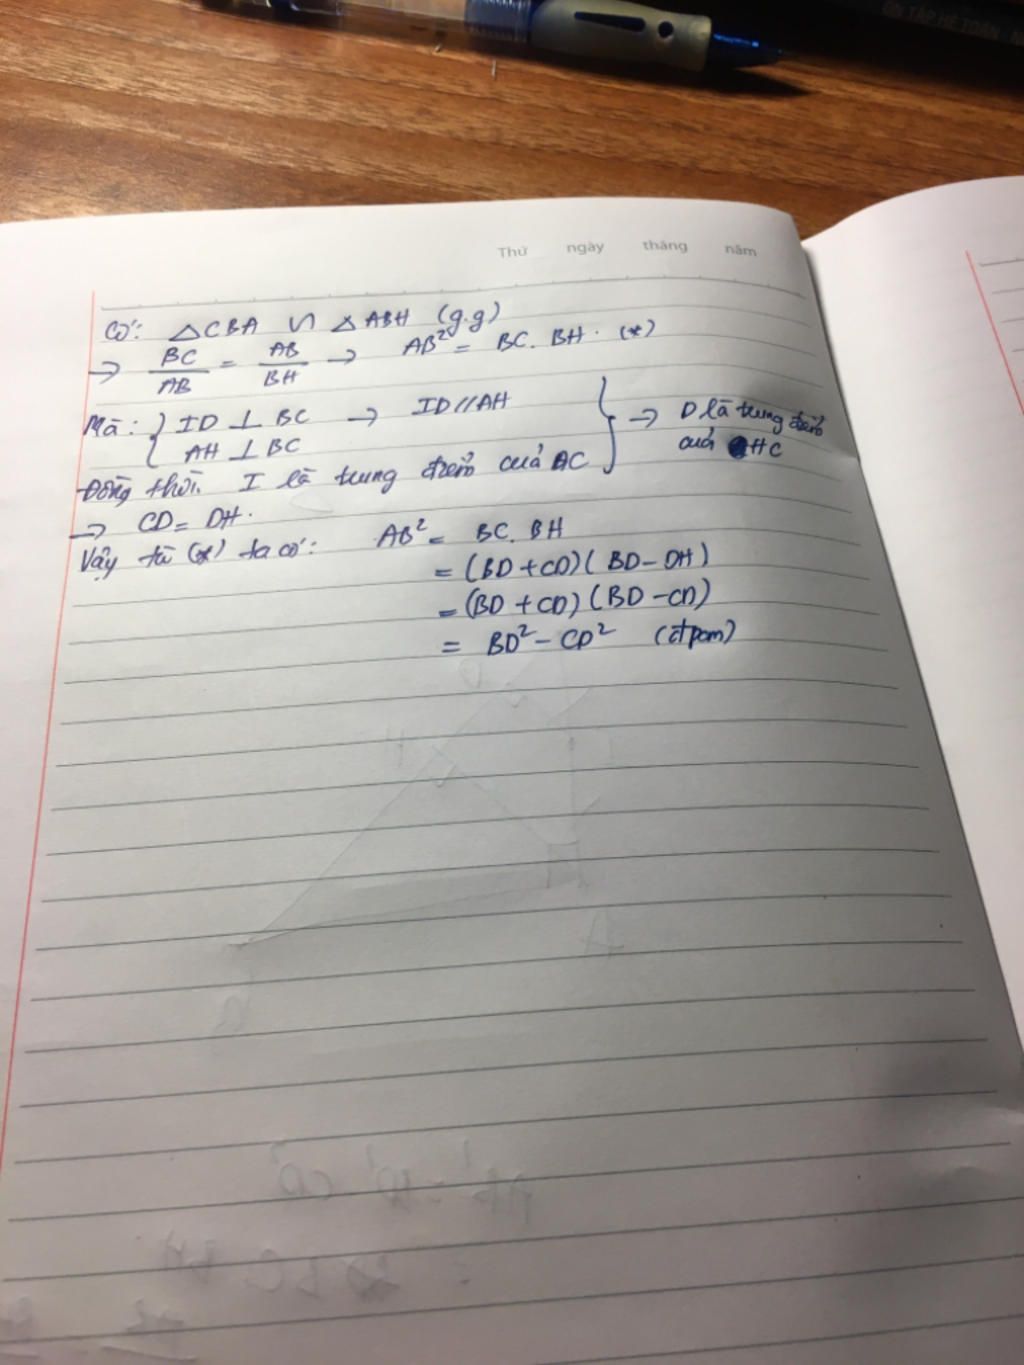 ÔN TẬP HÈ TOÁN
Thứ ngày tháng năm
Có: △CBA ∽ △ABH (g.g)
→ BC/AB = AB/BH → AB² = BC. BH. (*)
Mà: { ID ⊥ BC → ID // AH
AH ⊥ BC
Đồng thời I là trung điểm của AC } → D là trung điểm của HC
→ CD = DH.
Vậy từ (*) ta có: AB² = BC. BH
= (BD + CD)(BD - DH)
= (BD + CD)(BD - CD)
= BD² - CD² (đpcm)